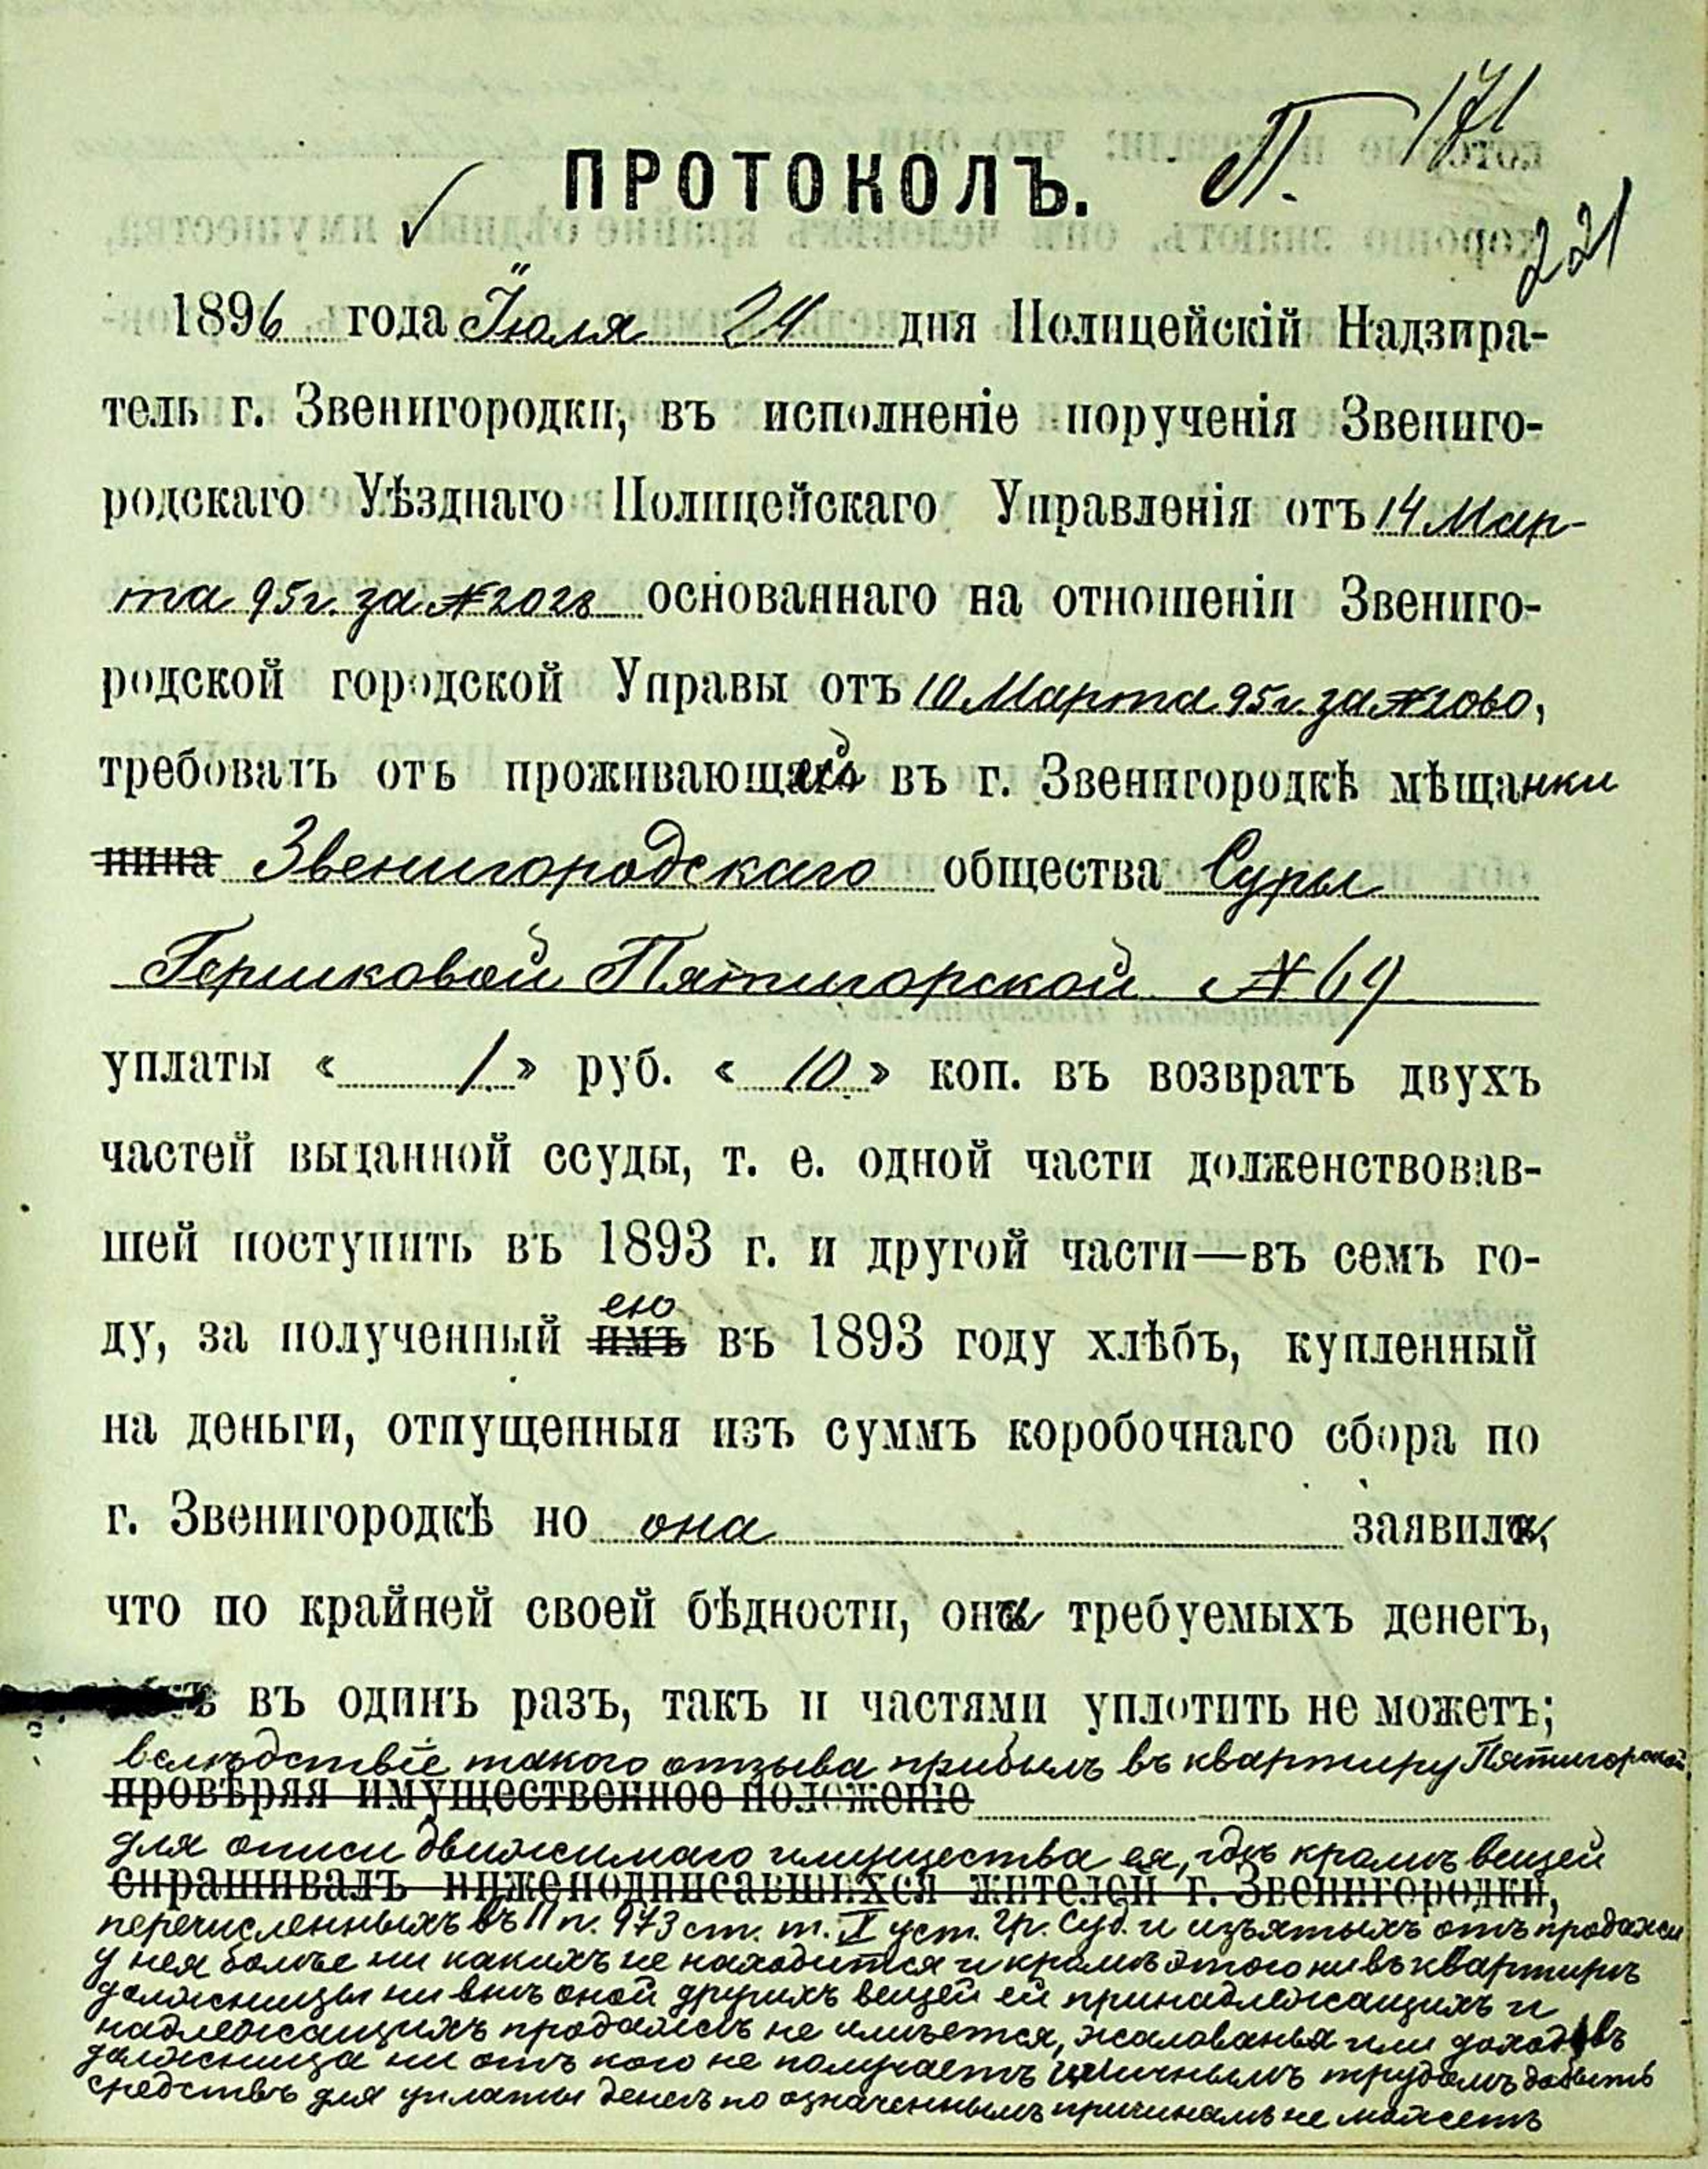 171
ПРОТОКОЛЪ. П.
221
1896 года Іюля 24 дня Полицейскій Надзира-
тель г. Звенигородки, въ исполненіе порученія Звениго-
родскаго Уѣзднаго Полицейскаго Управленія отъ 14 Мар-
та 95 г. за № 2028 основаннаго на отношеніи Звениго-
родской городской Управы отъ 10 Марта 95 г. за №
требовалъ отъ проживающей въ г. Звенигородкѣ мѣщанки
нина Звенигородскаго общества Суры
Гершковой Пятигорской № 69
уплаты « 1 » руб. « 10 » коп. въ возвратъ двухъ
частей выданной ссуды, т. е. одной части долженствовав-
шей поступить въ 1893 г. и другой части—въ семъ го-
ею
ду, за полученный имъ въ 1893 году хлѣбъ, купленный
на деньги, отпущенныя изъ суммъ коробочнаго сбора по
г. Звенигородкѣ но она заявила,
что по крайней своей бѣдности, она требуемыхъ денегъ,
въ одинъ разъ, такъ и частями уплотить не можетъ;
вслѣдствіе такого отзыва прибылъ въ квартиру Пятигорской
провѣряя имущественное положеніе
для описи движимаго имущества ея, гдѣ кромѣ вещей
спрашивалъ нижеподписавшихся жителей г. Звенигородки,
перечисленныхъ въ п. 973 ст. т. X уст. Гр. Суд. и изъятыхъ отъ продажи
у нея болѣе ни какихъ не находится и кромѣ этого ни въ квартирѣ
должницы ни внѣ оной другихъ вещей ей принадлежащихъ и
надлежащихъ продажѣ не имѣется, жалованья или доходовъ
должница ни отъ кого не получаетъ и личнымъ трудомъ добыть
средствъ для уплаты денегъ по означеннымъ причинамъ не можетъ